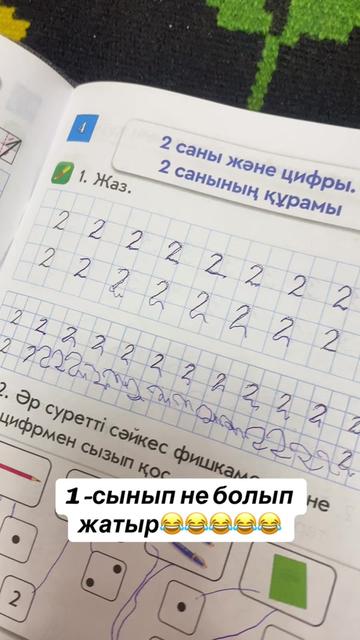 4
2 саны және цифры.
2 санының құрамы
1. Жаз.
2 2 2 2 2 2 2 2
2 2 2 2 2 2 2 2
2 2 2 2 2 2 2 2 2 2 2 2
2. Әр суретті сәйкес
цифрмен сызып қос
1-сынып не болып
жатыр😂😂😂😂😂
2